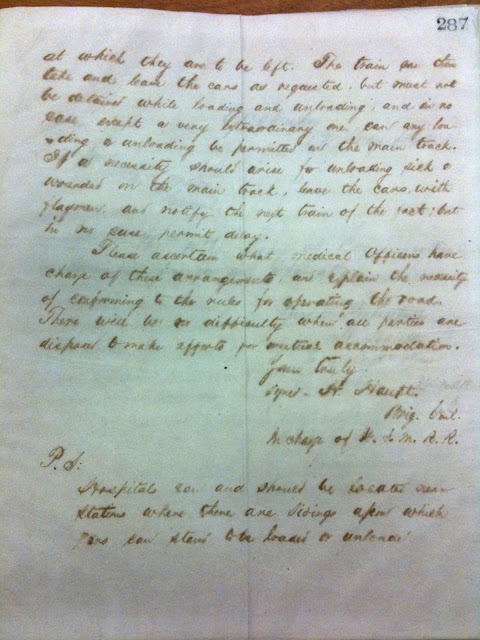 287
at which they are to be left. The train can then
take and leave the cars as requested, but must not
be detained while loading and unloading, and in no
case except a very extraordinary one, can any loa-
ding or unloading be permitted on the main track.
If a necessity should arise for unloading sick &
wounded on the main track, leave the cars, with
flagmen, and notify the next train of the fact; but
in no case permit delay.
Please ascertain what medical Officers have
charge of these arrangements, and explain the necessity
of conforming to the rules for operating the road.
There will be no difficulty when all parties are
disposed to make efforts for mutual accommodation.
Yours truly
H. Haupt.
Brig. Genl.
In charge of U. S. M. R. R.
P. S:
Hospitals can and should be located near
stations where there are sidings upon which
cars can stand to be loaded or unloaded